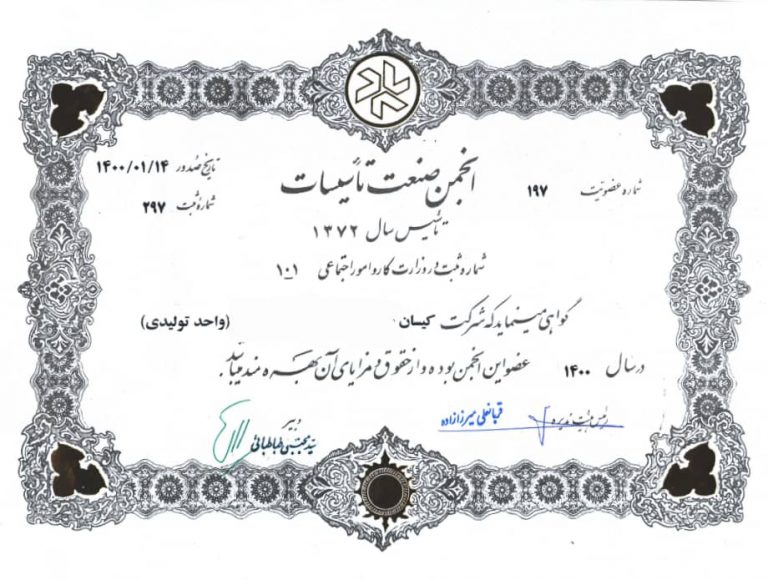 شماره عضویت ۱۹۷
انجمن صنعت تأسیسات
تاریخ صدور ۱۴۰۰/۰۱/۱۴
شماره ثبت ۲۹۷
تأسیس سال ۱۳۷۲
شماره ثبت در وزارت کار و امور اجتماعی ۱۰۱
گواهی مینماید که شرکت کیسان (واحد تولیدی)
در سال ۱۴۰۰ عضو این انجمن بوده و از حقوق و مزایای آن بهره مند میباشد.
رئیس هیئت مدیره
قربانعلی میرزازاده
دبیر
سید مجتبی طباطبائی